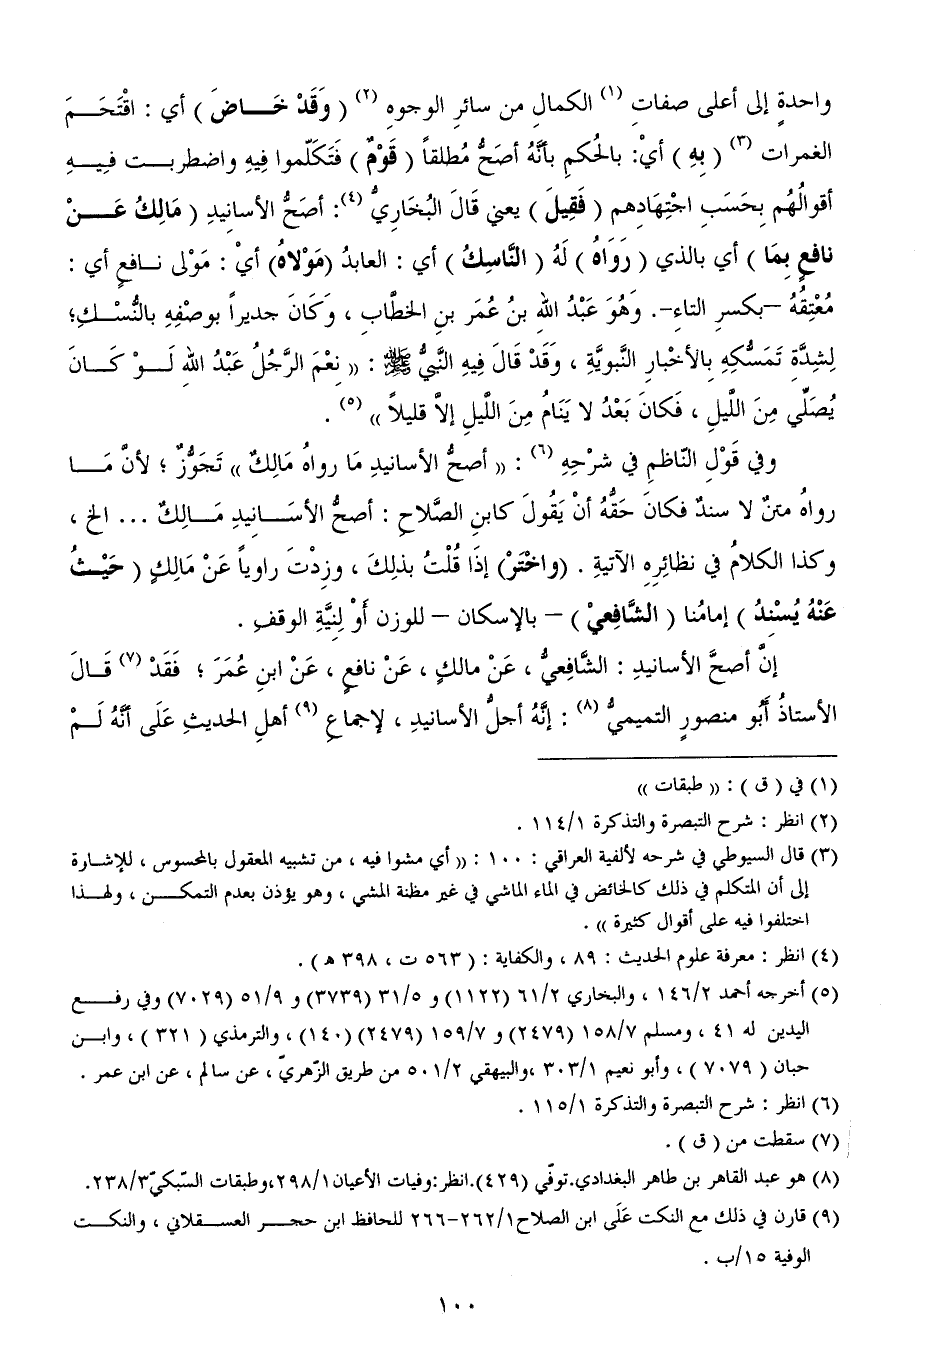 واحدةٍ إلى أعلى صفاتِ (١) الكمالِ من سائرِ الوجوهِ (٢) ( وَقَدْ خَــاضَ ) أي : اقْتَحَــمَ
الغمراتِ (٣) ( بِهِ ) أيْ: بالحُكمِ بأنَّهُ أصَحُّ مُطلقاً ( قَوْمٌ ) فَتَكَلّموا فِيهِ واضطربــت فِيــهِ
أقوالُهُم بِحَسَبِ اجْتِهادهم ( فَقِيلَ ) يعني قالَ البُخاريُّ (٤): أصَحُّ الأسانيدِ ( مَالِكُ عَــنْ
نافعٍ بِمَا ) أي بالذي ( رَوَاهُ ) لَهُ ( النَّاسِكُ ) أي : العابدُ (مَوْلاهُ) أيْ : مَوْلى نــافعٍ أي :
مُعْتِقُهُ –بكسرِ التاءِ–. وَهُوَ عَبْدُ اللهِ بنُ عُمَرَ بنِ الخطَّابِ ، وكَانَ جديراً بوصْفِهِ بالنُّسْــكِ؛
لِشدَّةِ تَمَسُّكِهِ بالأخْبارِ النَّبويَّةِ ، وقَدْ قالَ فِيهِ النَّبيُّ ﷺ : (( نِعْمَ الرَّجُلُ عَبْدُ اللهِ لَــوْ كَــانَ
يُصَلِّي مِنَ اللَّيلِ ، فَكانَ بَعْدُ لا يَنَامُ مِنَ اللَّيلِ إلاَّ قليلاً )) (٥) .
وفي قَوْلِ النّاظمِ في شرْحِهِ (٦) : (( أصحُّ الأسانيدِ مَا رواهُ مَالِكٌ )) تَجَوُّزٌ ؛ لأنَّ مَــا
رواهُ متنٌ لا سندٌ فكانَ حَقُّهُ أنْ يَقُولَ كابنِ الصَّلاحِ : أصحُّ الأسَــانيدِ مَــالِكٌ ... الخ ،
وكذا الكلامُ في نظائِرِهِ الآتيةِ . (واخْتَرْ) إذَا قُلْتُ بذلِكَ ، وزِدْتَ راوياً عَنْ مَالِكٍ ( حَيْــثُ
عَنْهُ يُسْنِدُ ) إمامُنا ( الشَّافِعيْ ) – بالإسكان – للوزنِ أوْ لِنيَّةِ الوقفِ .
إنَّ أصحَّ الأسانيدِ : الشَّافعيُّ ، عَنْ مالكٍ ، عَنْ نافعٍ ، عَنْ ابنِ عُمَرَ ؛ فَقَدْ (٧) قَــالَ
الأستاذُ أبُو منصورٍ التميميُّ (٨) : إنَّهُ أجلُّ الأسانيدِ ، لإجماعِ (٩) أهلِ الحديثِ عَلَى أنَّهُ لَــمْ
(١) في ( ق ) : (( طبقات ))
(٢) انظر : شرح التبصرة والتذكرة ١١٤/١ .
(٣) قال السيوطي في شرحه لألفية العراقي : ١٠٠ : (( أي مشوا فيه ، من تشبيه المعقول بالمحسوس ، للإشارة
إلى أن المتكلم في ذلك كالخائض في الماء الماشي في غير مظنة المشي ، وهو يؤذن بعدم التمكــن ، ولهــذا
اختلفوا فيه على أقوال كثيرة )) .
(٤) انظر : معرفة علوم الحديث : ٨٩ ، والكفاية : ( ٥٦٣ ت ، ٣٩٨ هـ ) .
(٥) أخرجه أحمد ١٤٦/٢ ، والبخاري ٦١/٢ (١١٢٢) و ٣١/٥ (٣٧٣٩) و ٥١/٩ (٧٠٢٩) وفي رفــع
اليدين له ٤١ ، ومسلم ١٥٨/٧ (٢٤٧٩) و ١٥٩/٧ (٢٤٧٩) (١٤٠) ، والترمذي ( ٣٢١ ) ، وابــن
حبان ( ٧٠٧٩ ) ، وأبو نعيم ٣٠٣/١ ،والبيهقي ٥٠١/٢ من طريق الزّهريّ ، عن سالم ، عن ابن عمر .
(٦) انظر : شرح التبصرة والتذكرة ١١٥/١ .
(٧) سقطت من ( ق ) .
(٨) هو عبد القاهر بن طاهر البغدادي.توفّي (٤٢٩).انظر:وفيات الأعيان٢٩٨/١،وطبقات السّبكيّ٢٣٨/٣.
(٩) قارن في ذلك مع النكت عَلَى ابن الصلاح٢٦٢/١–٢٦٦ للحافظ ابن حجــر العســقلاني ، والنكــت
الوفية ١٥/ب .
١٠٠